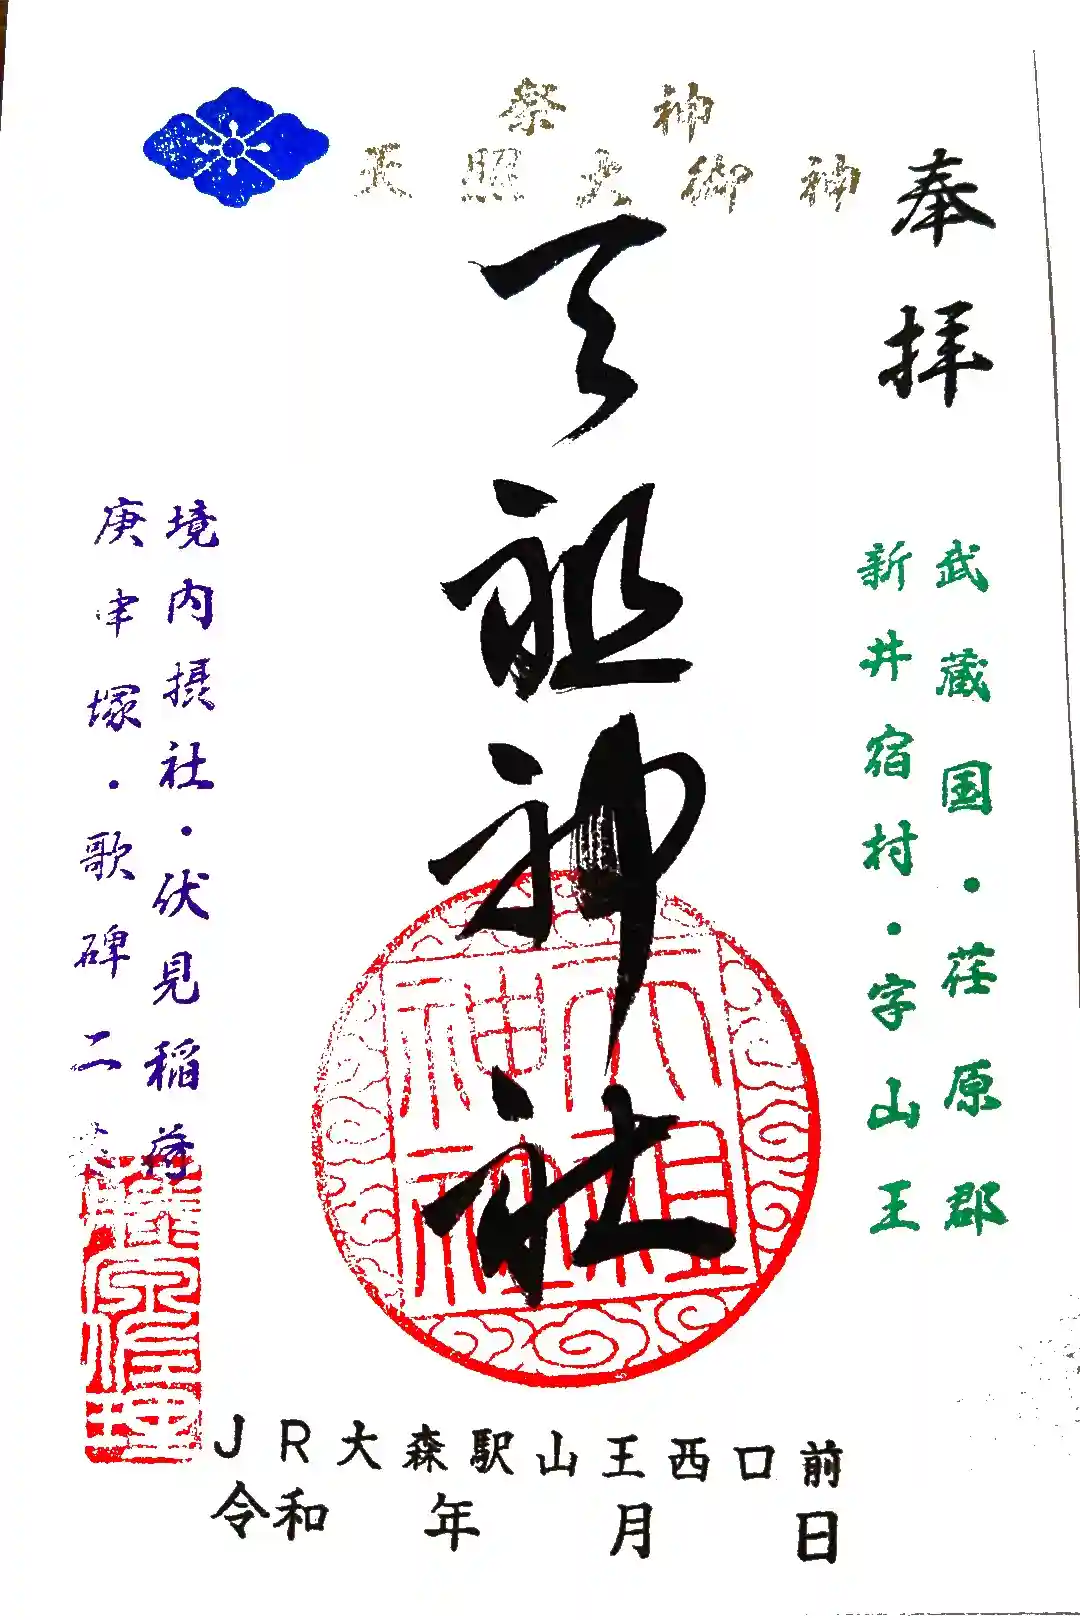 奉拝
武蔵国・荏原郡
新井宿村・字山王
祭神
天照大御神
天祖神社
天祖
神社
境内摂社・伏見稲荷
庚申塚・歌碑二
JR大森駅山王西口前
令和 年 月 日